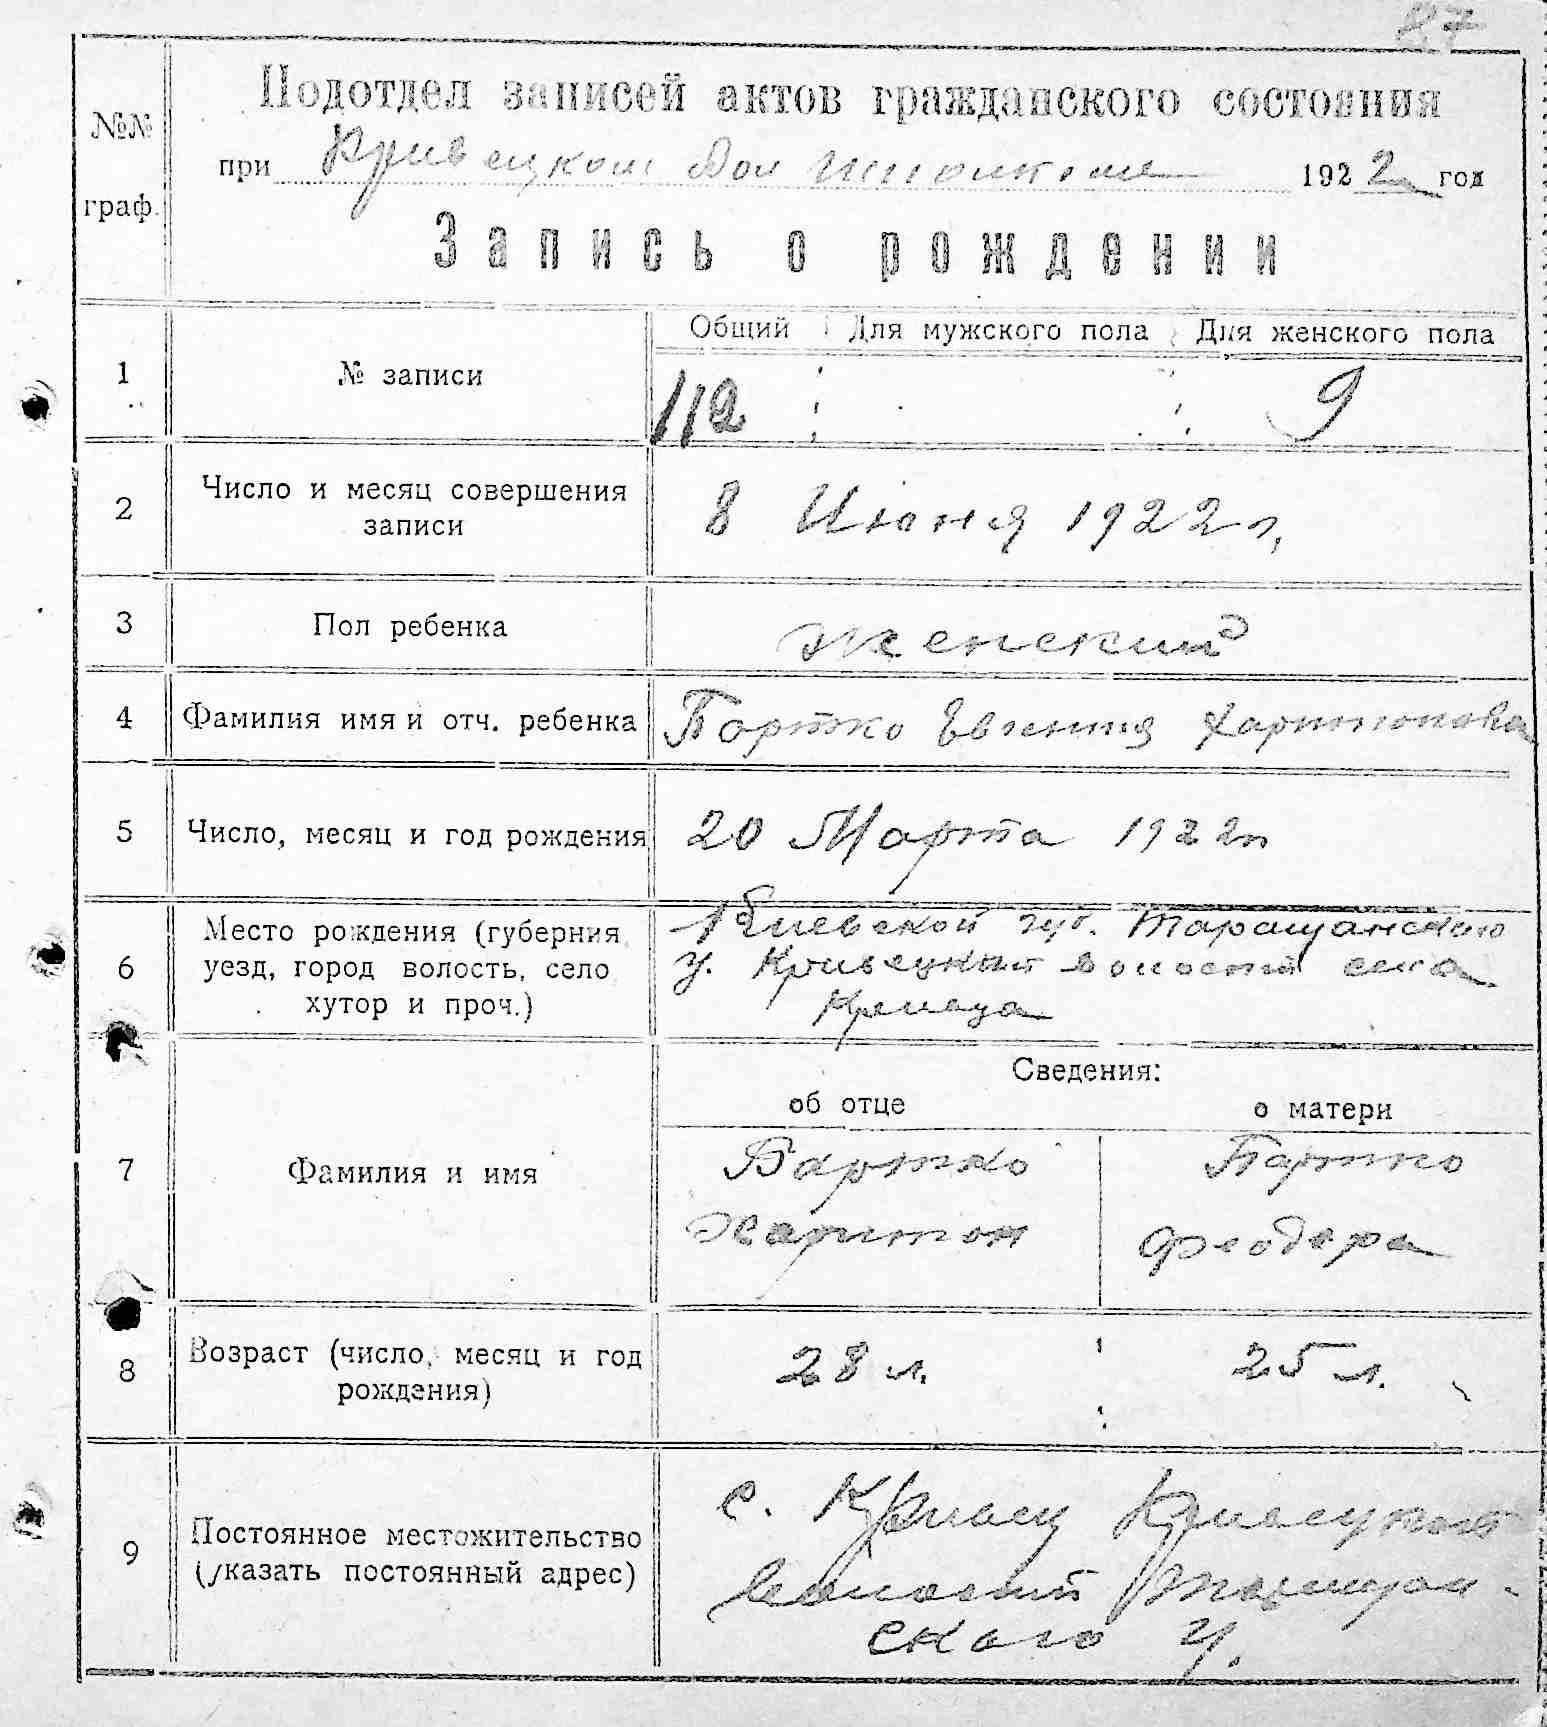 87
№№ граф.
Подотдел записей актов гражданского состояния
при Кривецком 1922 год
Запись о рождении
Общий Для мужского пола Для женского пола
1 № записи 112 9
2 Число и месяц совершения записи 8 Июня 1922 г.
3 Пол ребенка женский
4 Фамилия имя и отч. ребенка Бортко Евгения Харитонова
5 Число, месяц и год рождения 20 Марта 1922 г
6 Место рождения (губерния, уезд, город волость, село хутор и проч.)
Киевской губ. Таращанского
у. Кривецкой волости села
Кривца
Сведения:
об отце о матери
7 Фамилия и имя
Бартко Бартко
Харитон Феодора
8 Возраст (число, месяц и год рождения) 28 л. 25 л.
9 Постоянное местожительство (указать постоянный адрес)
с. Кривец Кривецкой
волости Таращан-
ского у.